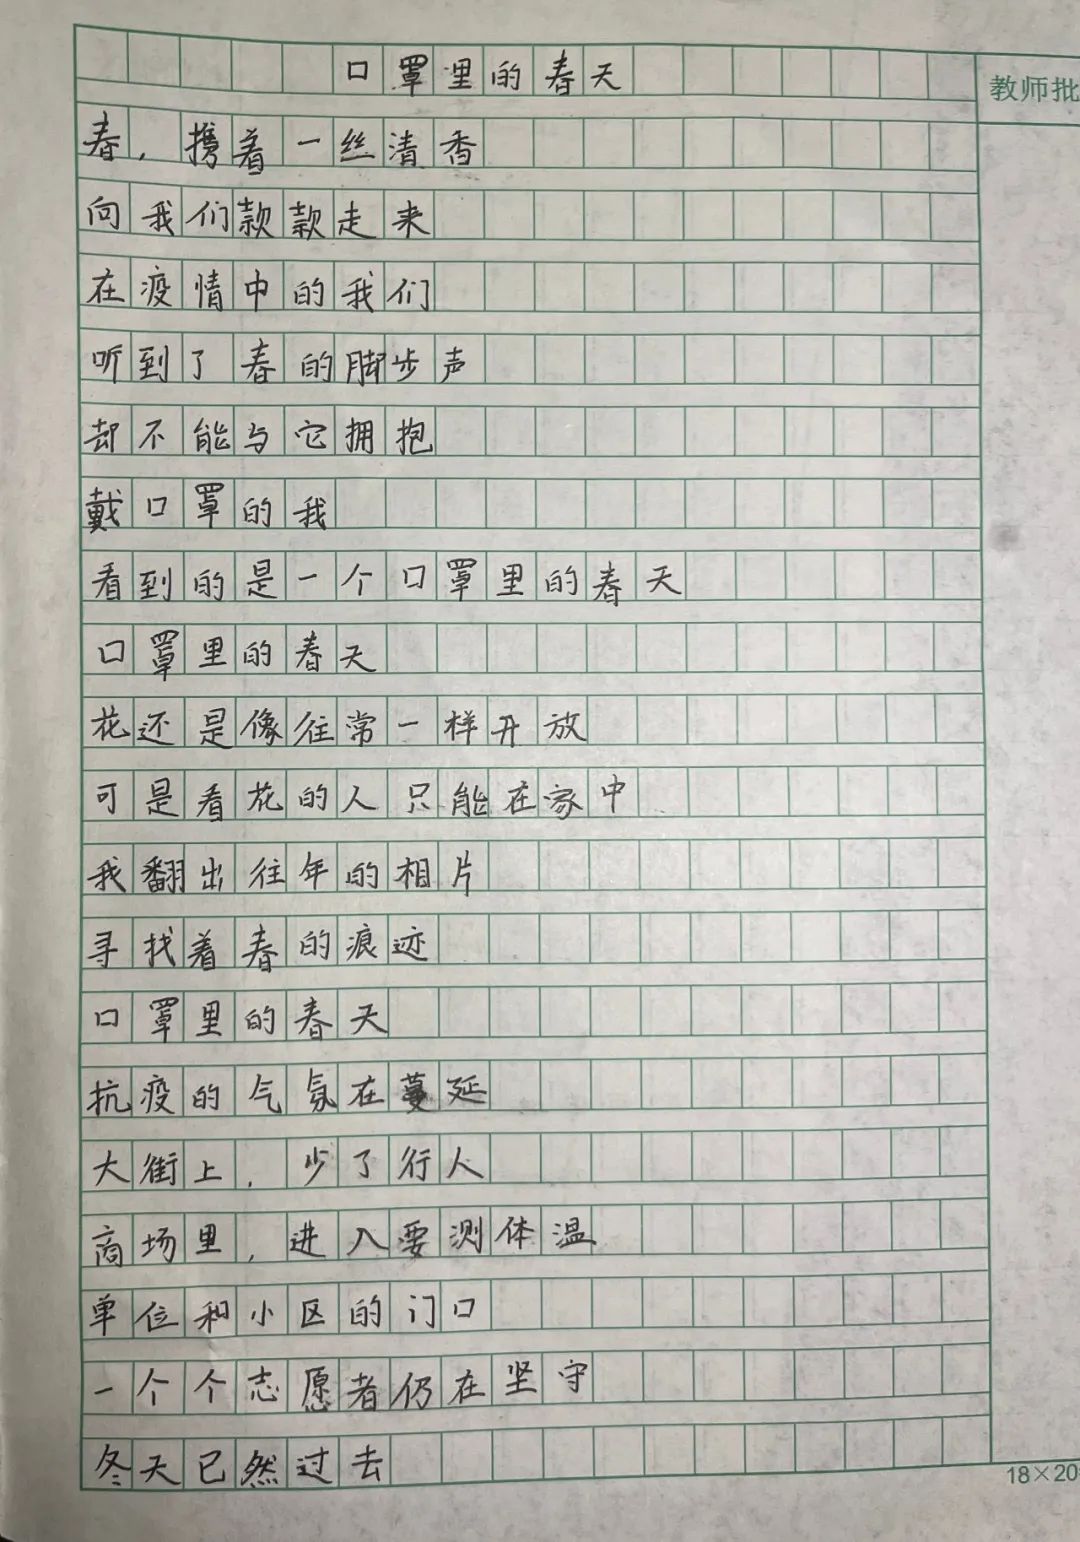 口罩里的春天
教师批
春，携着一丝清香
向我们款款走来
在疫情中的我们
听到了春的脚步声
却不能与它拥抱
戴口罩的我
看到的是一个口罩里的春天
口罩里的春天
花还是像往常一样开放
可是看花的人只能在家中
我翻出往年的相片
寻找着春的痕迹
口罩里的春天
抗疫的气氛在蔓延
大街上，少了行人
商场里，进入要测体温
单位和小区的门口
一个个志愿者仍在坚守
冬天已然过去
18×20